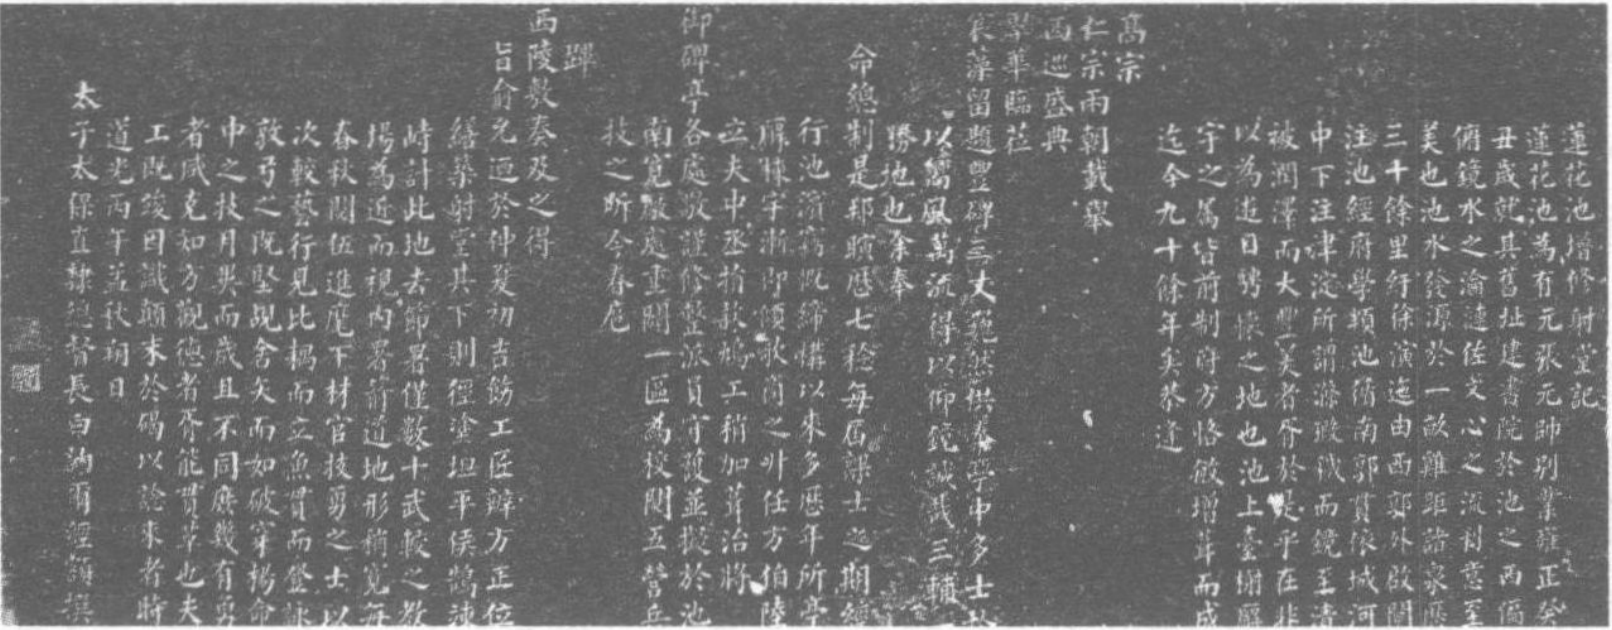 蓮花池增修射堂記
蓮花池為有元張元帥別業雍正癸
丑歲就其舊址建書院於池之西偏
俯鏡水之淪漣佐文心之流利意至
美也池水發源於一畝雞距諸泉歷
三十餘里紆徐演迤由西郭外啟閘
注池經府學頖池循南郭貫依城河
中下注津淀所謂滌瑕穢而鏡至清
被潤澤而大豐美者胥於是乎在非
以為遊目騁懷之地也池上臺榭廨
宇之屬皆前制府方恪敏增葺而成
迄今九十餘年矣恭逢
高宗
仁宗兩朝載舉
西巡盛典
翠華臨蒞
宸藻留題豐碑三丈巍然供奉亭中多士於
以嚮風萬流得以仰鏡誠哉三輔
勝地也余奉
命總制是邦瞚歷七稔每屆課士之期經
行池濱竊慨締構以來多歷年所亭
廊棟宇漸即傾欹商之升任方伯陸
立夫中丞捐款鳩工稍加葺治將
御碑亭各處敬謹修整派員守護並擬於池
南寬敞處重闢一區為校閱五營兵
技之所今春扈
蹕
西陵敷奏及之得
旨俞允迺於仲夏初吉飭工匠辨方正位
繕築射堂其下則徑塗坦平侯鵠竦
峙計此地去節署僅數十武較之教
場為近而視內署箭道地形稍寬每
春秋閱伍進麾下材官技勇之士以
次較藝行見比耦而立魚貫而登詠
敦弓之既堅覘舍矢而如破穿楊命
中之技月異而歲且不同庶幾有勇
者咸克知方觀德者胥能貫革也夫
工既竣因識顛末於碣以諗來者時
道光丙午孟秋朔日
太子太保直隸總督長白訥爾經額撰